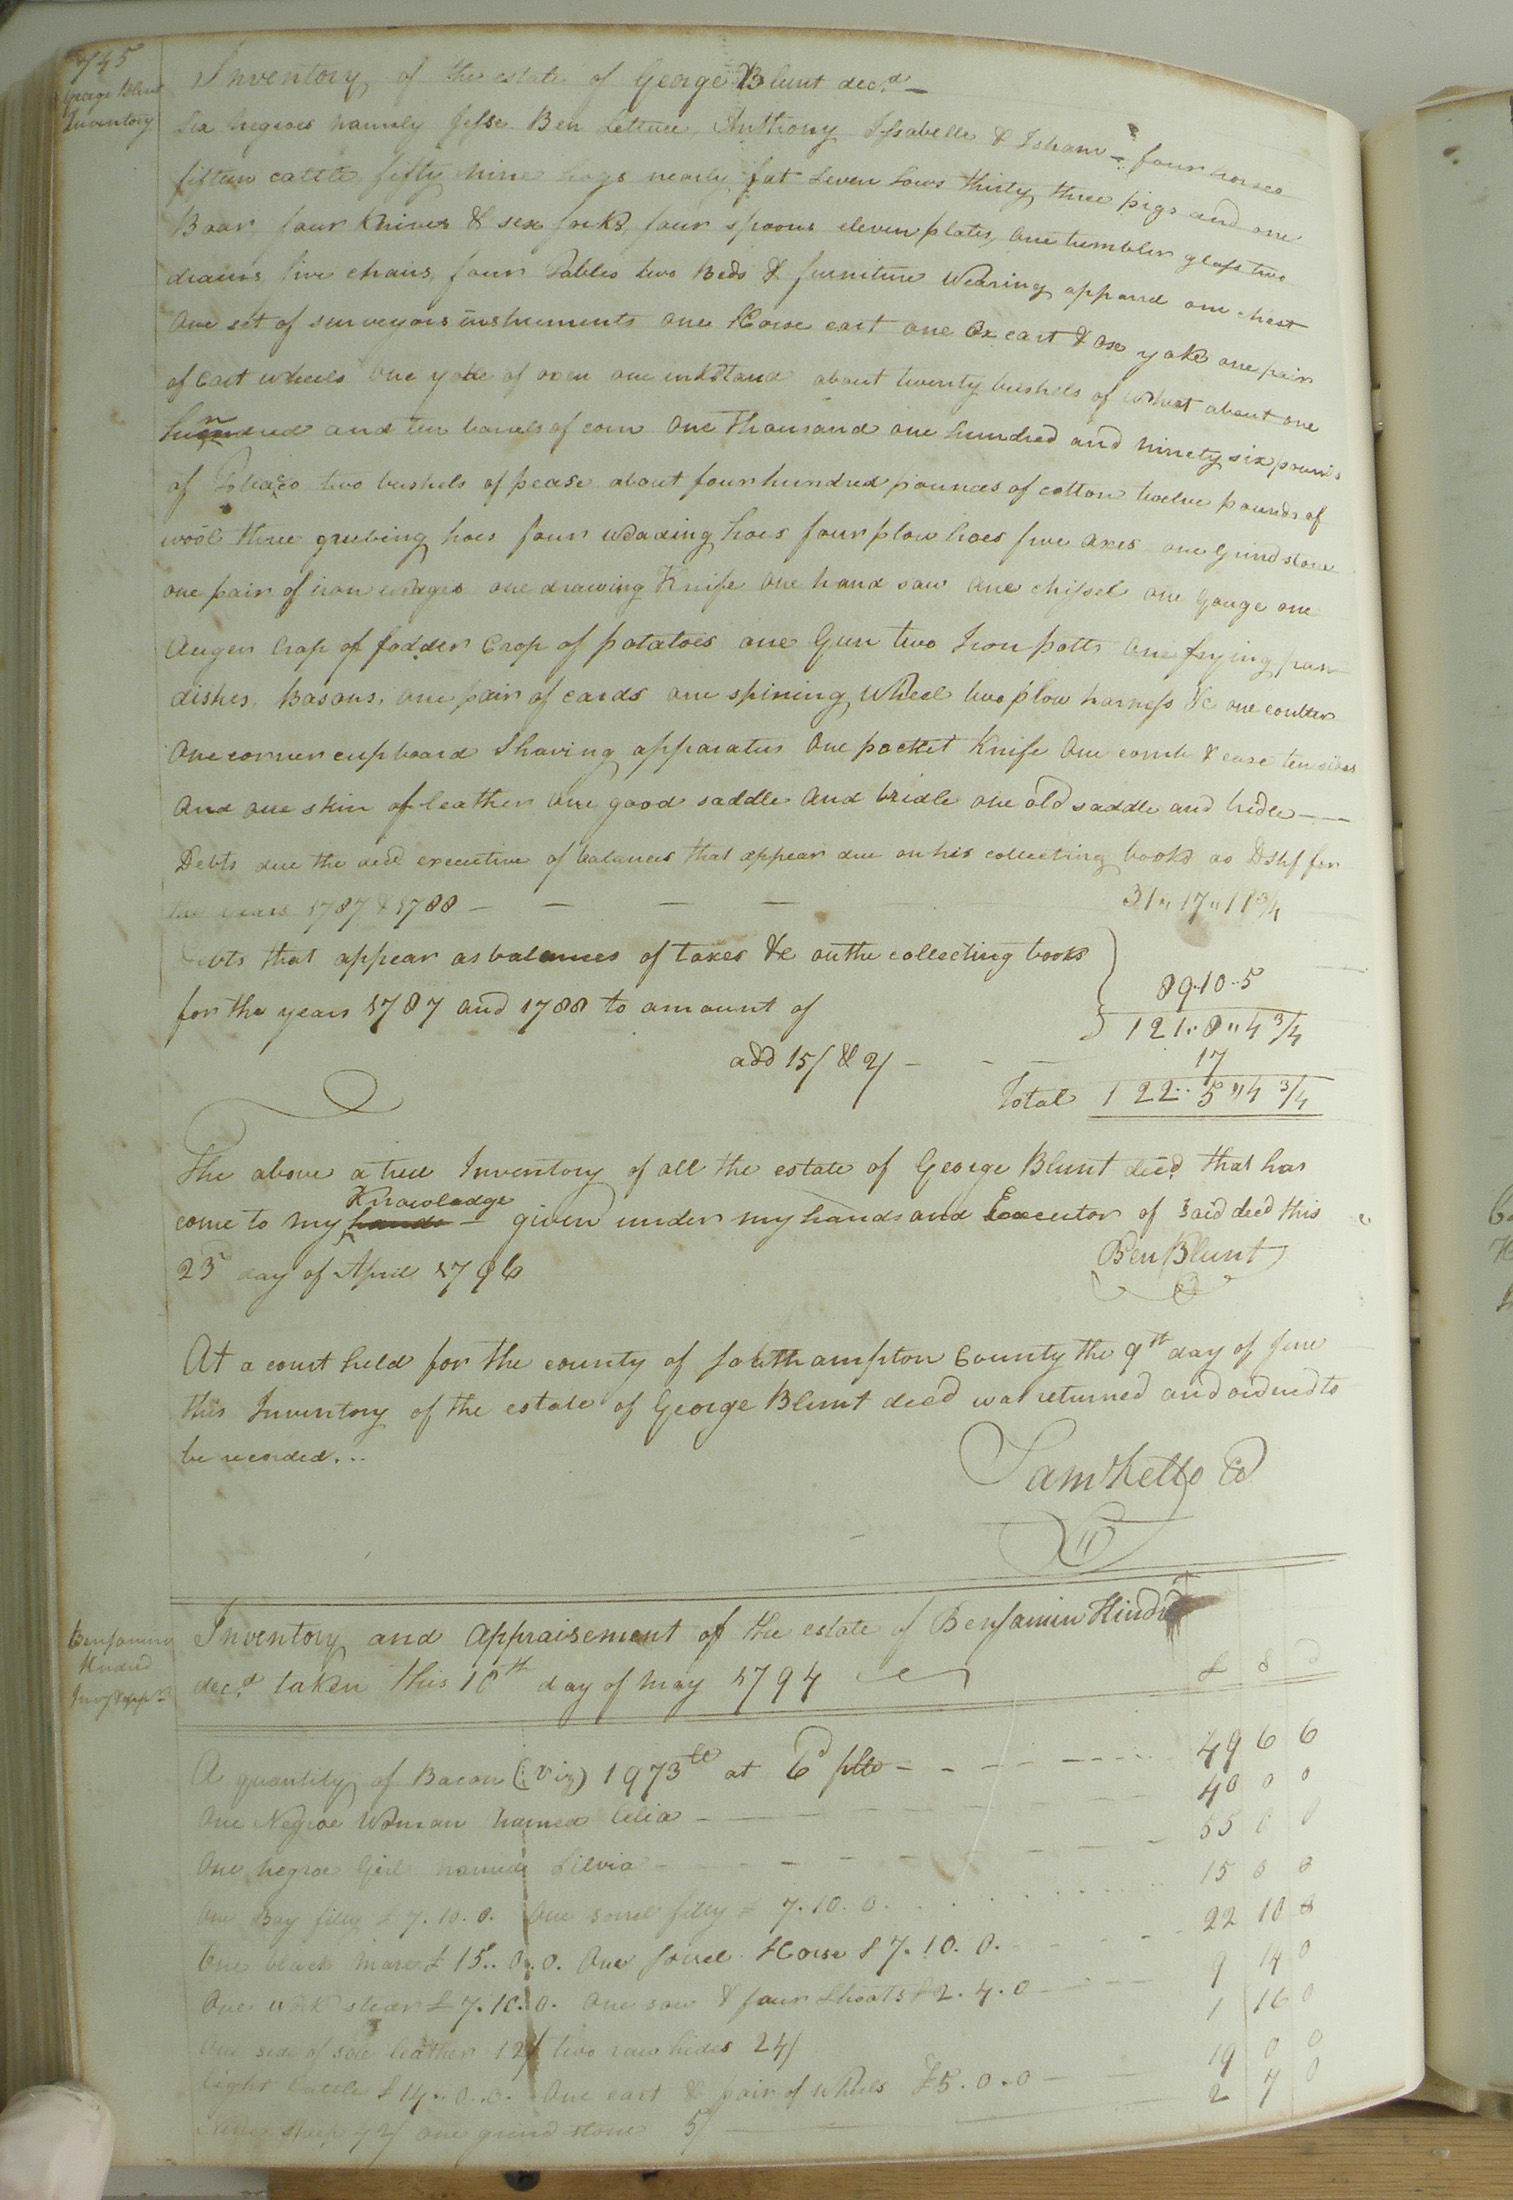 745
George Blunt
Inventory
Inventory of the estate of George Blunt decd.
Six negroes namely Jesse Ben Lettuce, Anthony Issabelle & Isham four horses
fifteen cattle, fifty nine hogs nearly fat seven sows thirty three pigs and one
Boar, four Knives & six forks, four spoons eleven plates, one tumbler glass two
five chairs, four Tables two Beds & furniture Wearing apparel one chest
One set of surveyors instruments one Horse cart one Ox cart & Ox yoke one pair
of Cart wheels One yoke of oxen one inkstand about twenty bushels of wheat about one
hundred and ten barrels of corn One thousand one hundred and ninety six pounds
of Tobacco two bushels of pease about four hundred pounds of cotton twelve pounds of
wool three grubing hoes four weading hoes four plow hoes five axes one Grindstone
one pair of iron wedges one drawing Knife one hand saw one chissel one Gouge one
Auger Crop of fodder Crop of potatoes one Gun two Iron potts one frying pan
dishes, Basons, one pair of cards one spining Wheel two plow harness &c one coulter
One corner cupboard Shaving apparatus One pocket Knife One comb & case ten sides
And one skin of leather one good saddle And bridle one old saddle and bridle
Debts due the decd executive of balances that appear due on his collecting books as Dshf for
the years 1787 & 1788 — — — — 31" 17" 11 3/4
Debts that appear as balances of taxes &c on the collecting books
for the years 1787 and 1788 to amount of
89.10..5
121" 8" 4 3/4
add 15/ & 2/ — — — 17
Total 122.. 5" 4 3/4
The above a true Inventory of all the estate of George Blunt decd. that has
Knowledge
come to my hands given under my hands and Executor of said decd this
23d day of April 1796
Ben Blunt
At a court held for the county of Southampton County the 9th day of June
this Inventory of the estate of George Blunt decd was returned and ordered to
be recorded...
Sam Kello
Benjamin
Kindred
Invy & app
Inventory and Appraisement of the estate of Benjamin Kindred
decd. taken this 18th day of may 1794
£ S D
A quantity of Bacon (Viz) 1973 lb at 6d — 49 6 6
One Negroe Woman named Celia — 40 0 0
One negroe Girl named Silvia — 55 0 0
One Bay filly £ 7.10.0. One sorrel filly £ 7.10.0. 15 0 0
One black mare £ 15..0.0. One sorrel Horse £ 7.10.0. — 22 10 0
One work steer £ 7.10.0. One sow & four shoats £ 2.4.0 — 9 14 0
One side of sole leather 12/ two raw hides 24/ 1 16 0
Eight Cattle £ 14..0..0. One cart & pair of wheels £ 5.0.0 — 19 0 0
sheep 42/ one grind stone 5/ — 2 7 0